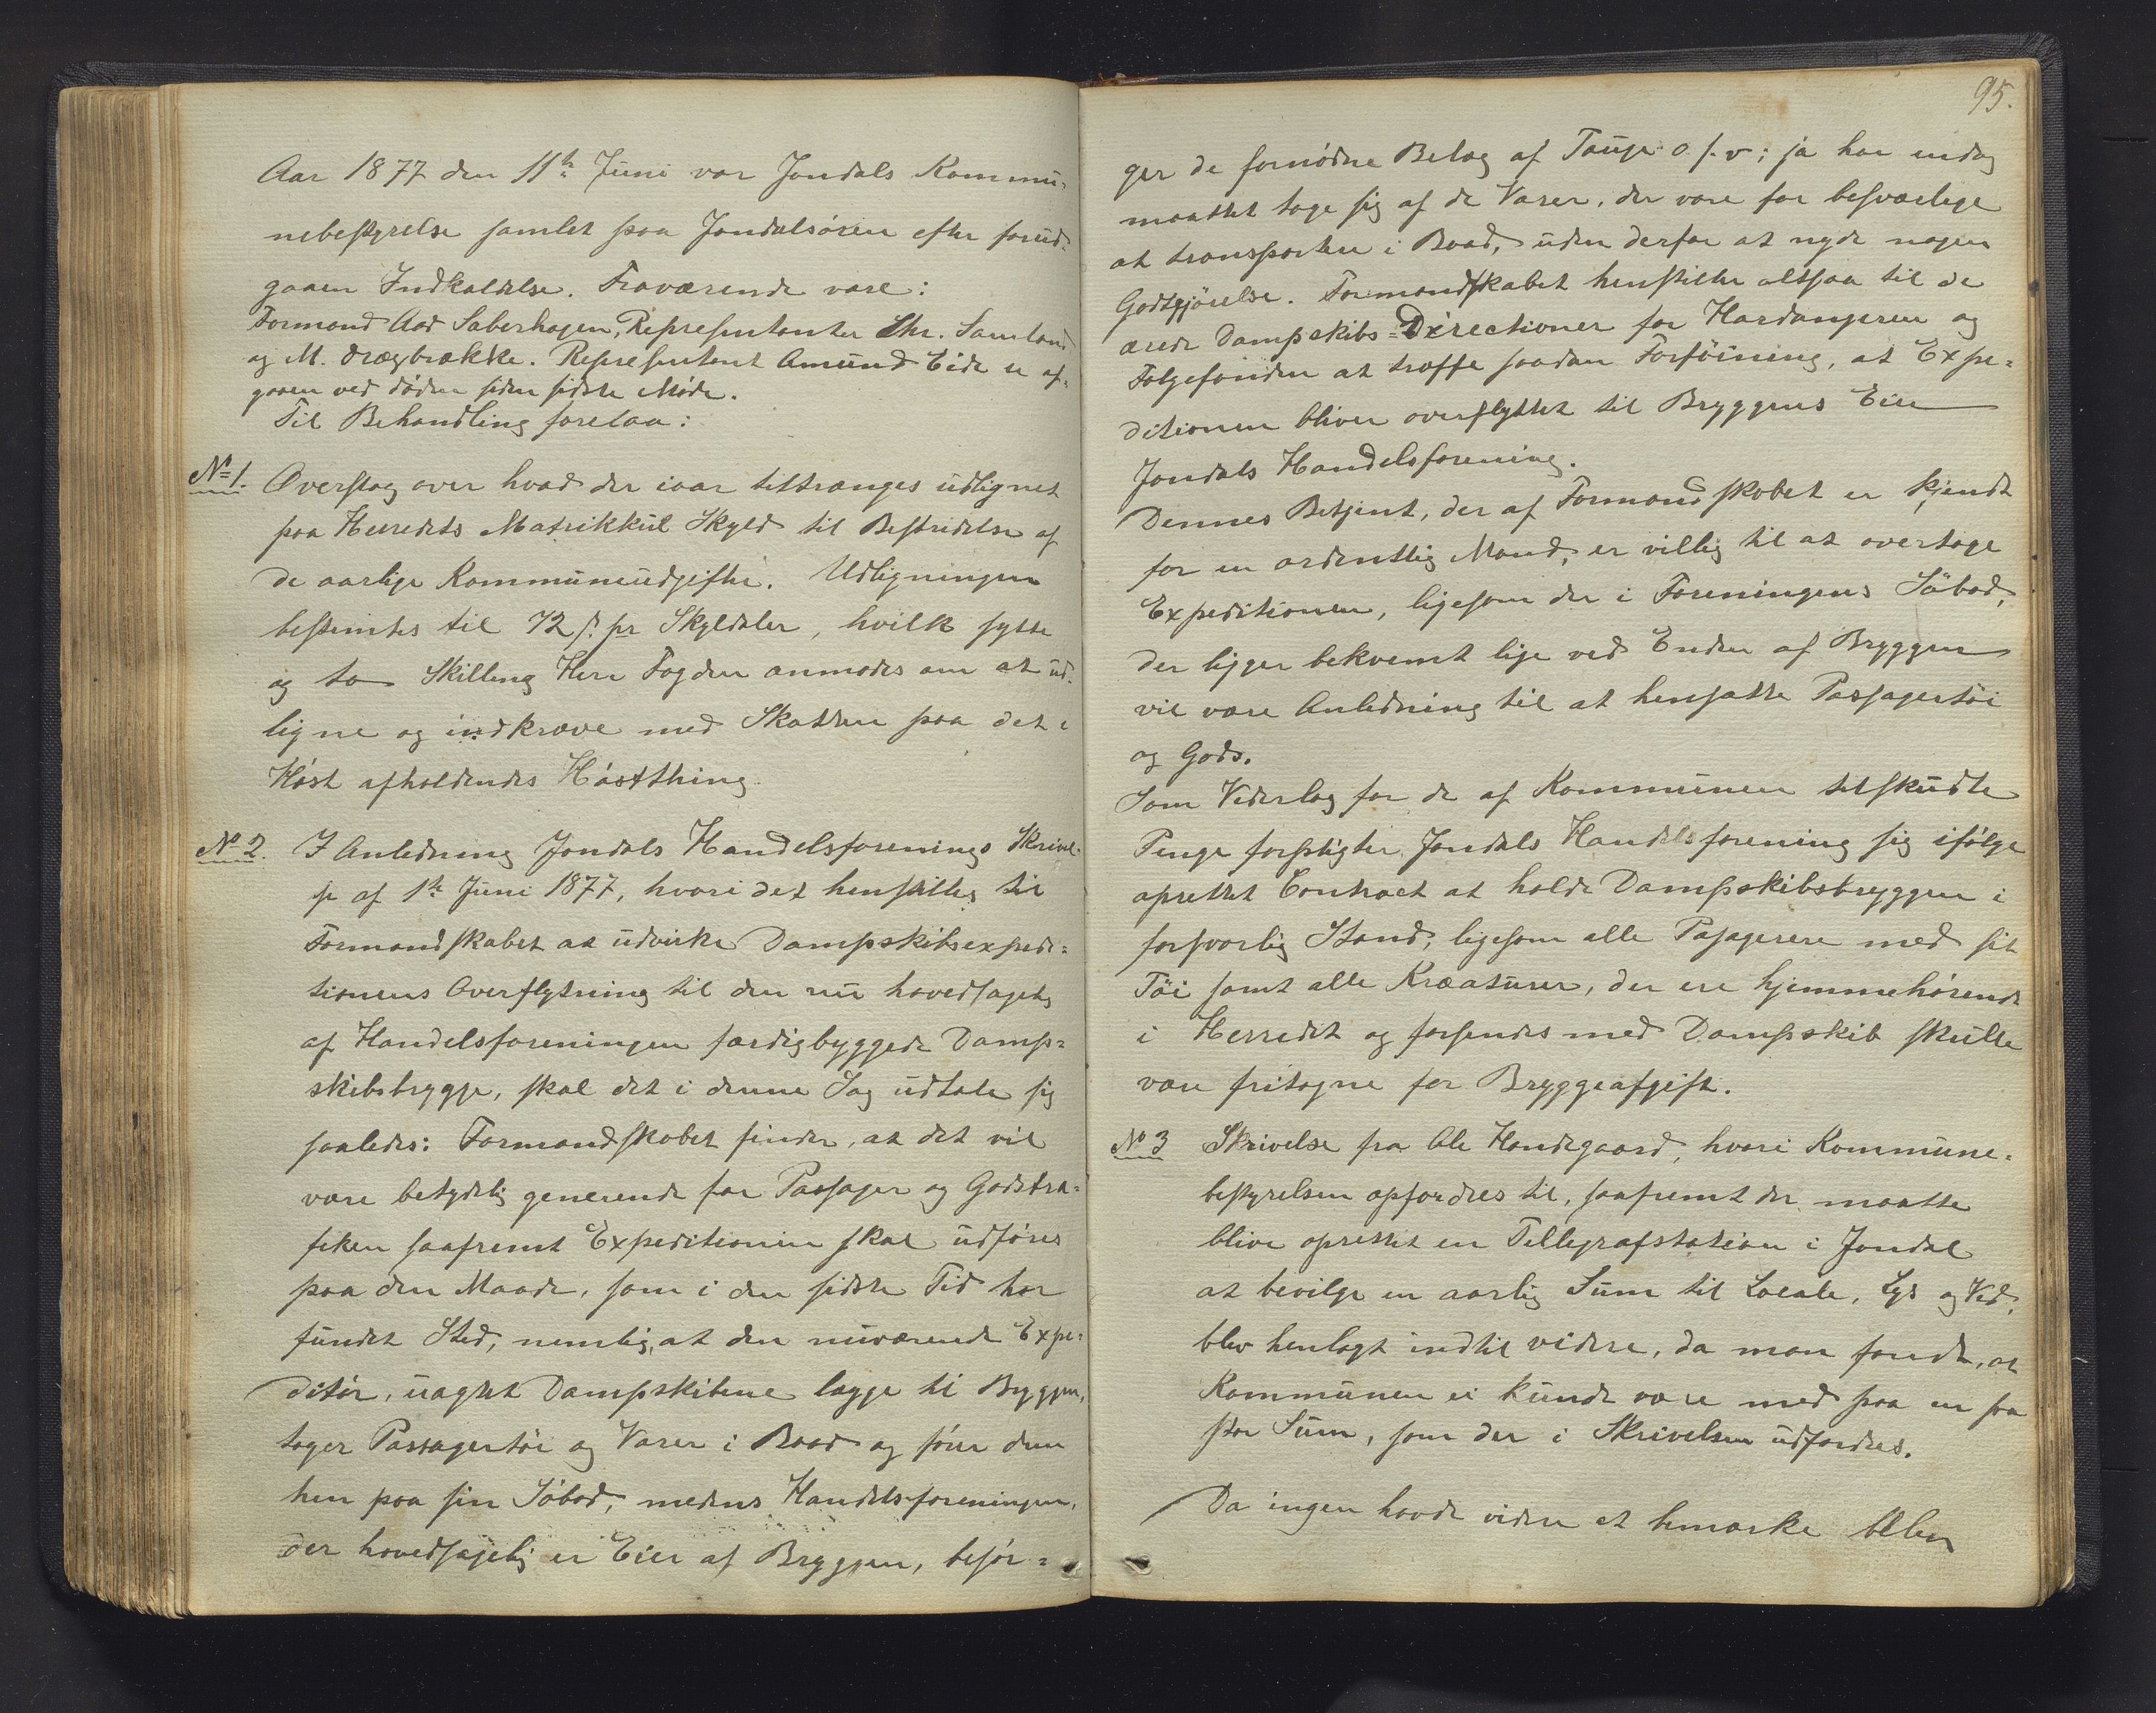 Aar 1877 den 11te Juni var Jondals Kommu-
nebestyrelse samlet paa Jondalsören efter forud-
gaaen Indkaldelse. Fraværende vare:
Formand Aad Saberhagen, Repræsentanter Chr. Samland
og M. Drægebrække. Repræsentant Amund Eide er af-
gaaen ved döden siden sidste Möde.
Til Behandling forelaa:
No 1. Overslag over hvad der iaar tiltrænges udlignet
paa Herredets Matrikkul Skyld til Bestridelse af
de aarlige Kommuneudgifter. Udligningen
bestemtes til 72 s. pr Skyldaler, hvilke sytti
og to Skilling Herr Fogden anmodes om at ud-
ligne og indkræve med Skatten paa det i
Höst afholdendes Höstthing.
No 2. I Anledning Jondals Handelsforenings Skrivel-
se af 1te Juni 1877, hvori det henstilles til
Formandskabet at udvirke Dampskibsexpedi-
tionens Overflytning til den nu hovedsagelig
af Handelsforeningen færdigbyggede Damp-
skibsbrygge, skal det i denne Sag udtale sig
saaledes: Formandskabet finder, at det vil
være betydelig generende for Passager og Godstra-
fiken saafremt Expeditionen skal udföres
paa den Maade, som i den sidste Tid har
fundet Sted, nemlig, at den nuværende Expe-
ditör, uagtet Dampskibene lægge til Bryggen,
tager Passagertöi og Varer i Baad og förer dem
hen paa sin Söbod, medens Handelsforeningen,
der hovedsagelig er Eier af Bryggen, besör-
95.
ger de fornödne Belæg af Tauge o. s. v; ja har endog
maattet tage sig af de Varer, der vare for besværlige
at transportere i Baad, uden derfor at nyde nogen
Godtgjörelse. Formandskabet henstiller altsaa til de
ærede Dampskibs-Directioner for Hardangeren og
Folgefonden at træffe saadan Forföining, at Expe-
ditionen bliver overflyttet til Bryggens Eier
Jondals Handelsforening.
Dennes Betjent, der af Formandskabet er kjendt
for en ordentlig Mand, er villig til at overtage
Expeditionen, ligesom der i Foreningens Söbod,
der ligger bekvemt lige ved Enden af Bryggen
vil være Anledning til at hensætte Passagertöi
og Gods.
Som Vederlag for de af Kommunen tilskudte
Penge forpligter Jondals Handelsforening sig ifölge
oprettet Contract at holde Dampskibsbryggen i
forsvarlig Stand, ligesom alle Pasagerere med sit
Töi samt alle Kræaturer, der ere hjemmehörende
i Herredet og forsendes med Dampskib skulle
være fritagne for Bryggeafgift.
No 3 Skrivelse fra Ole Handegaard, hvori Kommune-
bestyrelsen opfordres til, saafremt der maatte
blive oprettet en Tellegrafstation i Jondal
at bevilge en aarlig Sum til Locale, Lys og Ved,
blev henlagt indtil videre, da man fandt, at
Kommunen ei kunde være med paa en saa
stor Sum, som der i Skrivelsen udfordres.
Da ingen havde videre at bemærke blev